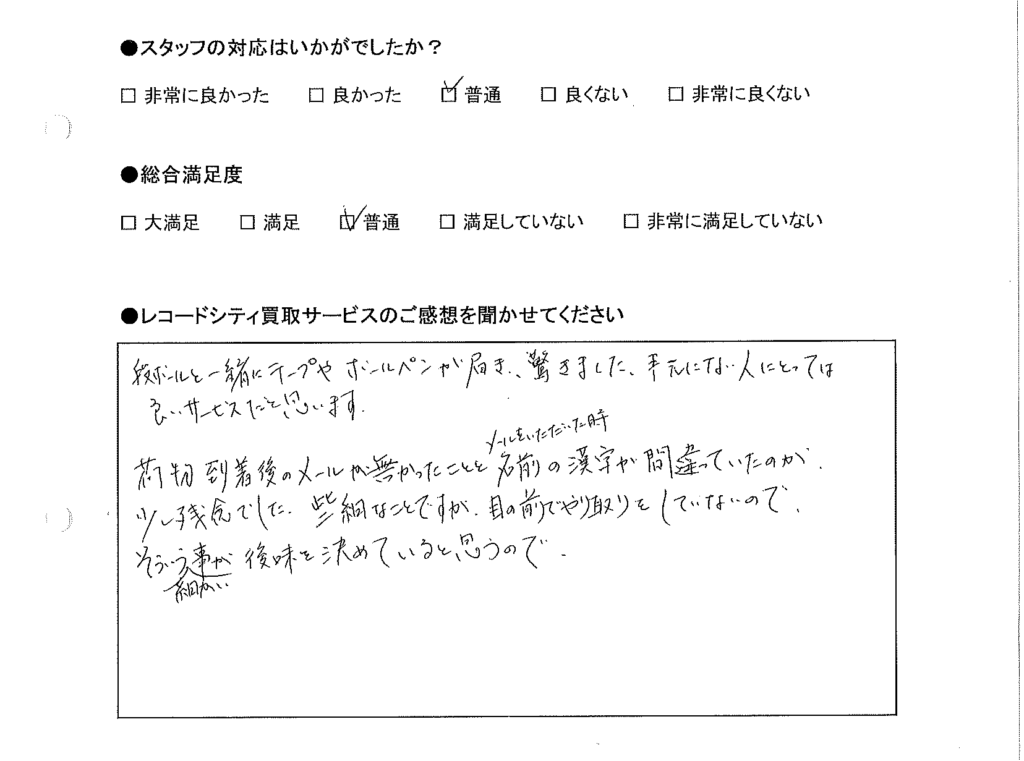 ●スタッフの対応はいかがでしたか？
□ 非常に良かった □ 良かった ☑ 普通 □ 良くない □ 非常に良くない
●総合満足度
□ 大満足 □ 満足 ☑ 普通 □ 満足していない □ 非常に満足していない
●レコードシティ買取サービスのご感想を聞かせてください
段ボールと一緒にテープやボールペンが届き、驚きました、手元にない人にとっては
良いサービスだと思います.
メールをいただいた時
荷物到着後のメールが無かったことと名前の漢字が間違っていたのが、
少し残念でした. 些細なことですが、目の前でやり取りをしていないので、
そういう事が後味を決めていると思うので.
細かい